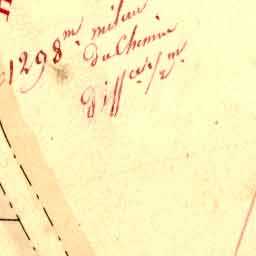 1298.m milieu
du Chemin
diffce 1/2 m.